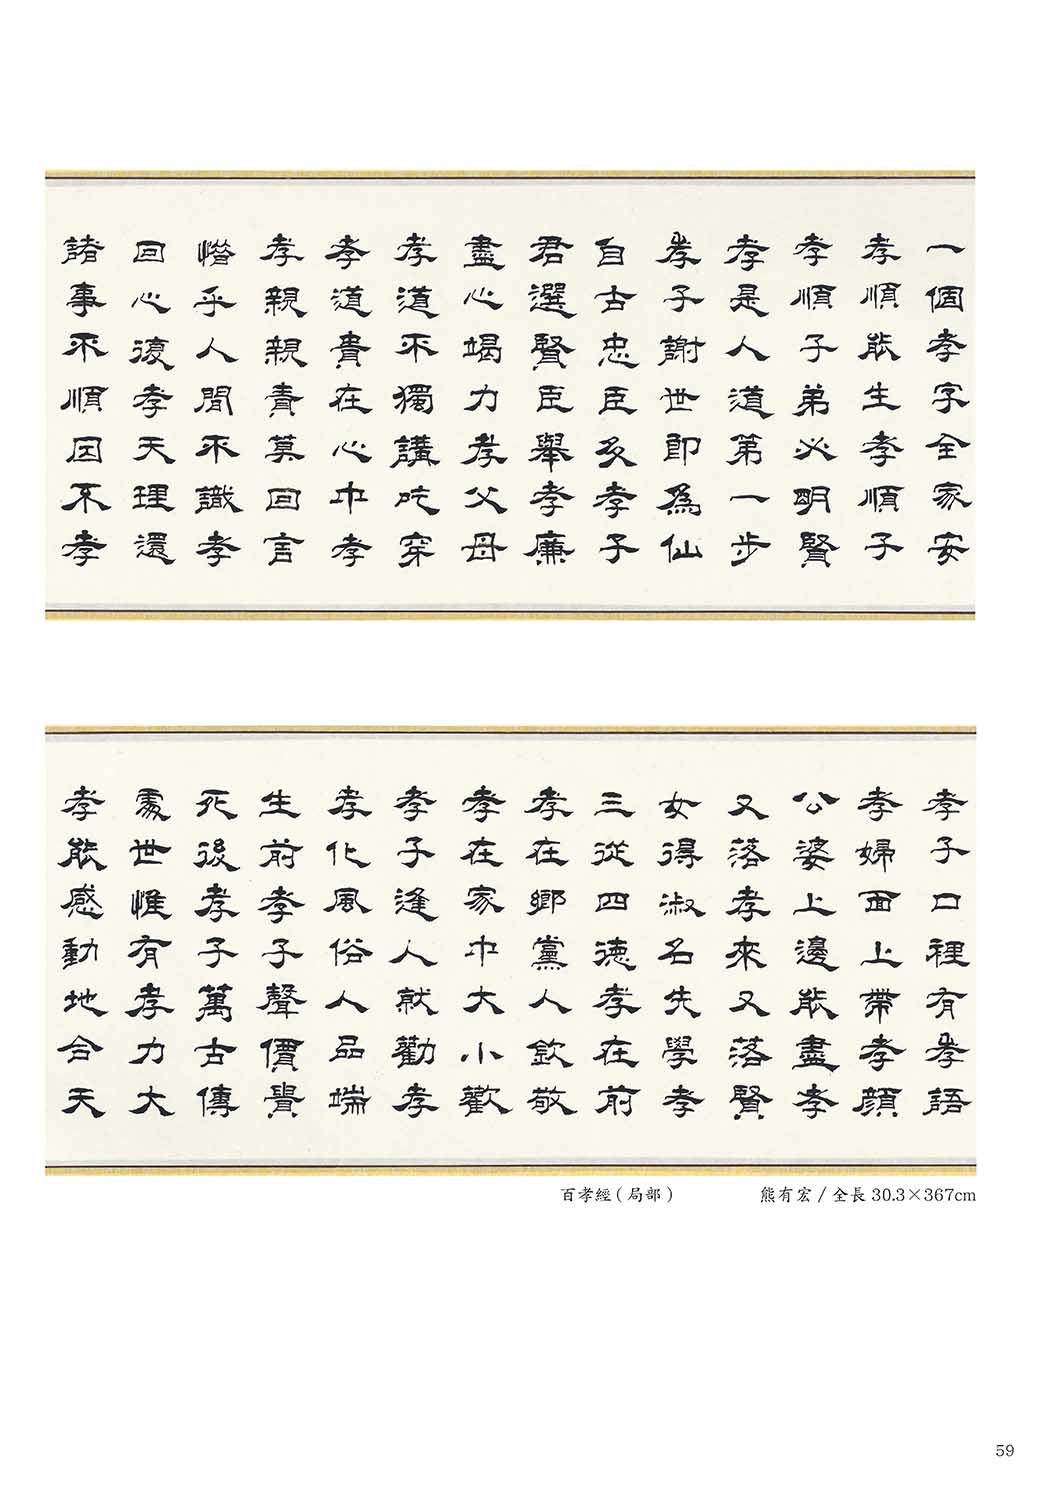 一個孝字全家安
孝順能生孝順子
孝順子弟必明賢
孝是人道第一步
孝子謝世即為仙
自古忠臣多孝子
君選賢臣舉孝廉
盡心竭力孝父母
孝道不獨講吃穿
孝道貴在心中孝
孝親親責莫回言
惜乎人間不識孝
回心復孝天理還
諸事不順因不孝
孝子口裡有孝語
孝婦面上帶孝顏
公婆上邊能盡孝
又落孝來又落賢
女得淑名先學孝
三從四德孝在前
孝在鄉黨人欽敬
孝在家中大小歡
孝子逢人就勸孝
孝化風俗人品端
生前孝子聲價貴
死後孝子萬古傳
處世惟有孝力大
孝能感動地合天
百孝經(局部)
熊有宏/全長30.3×367cm
59